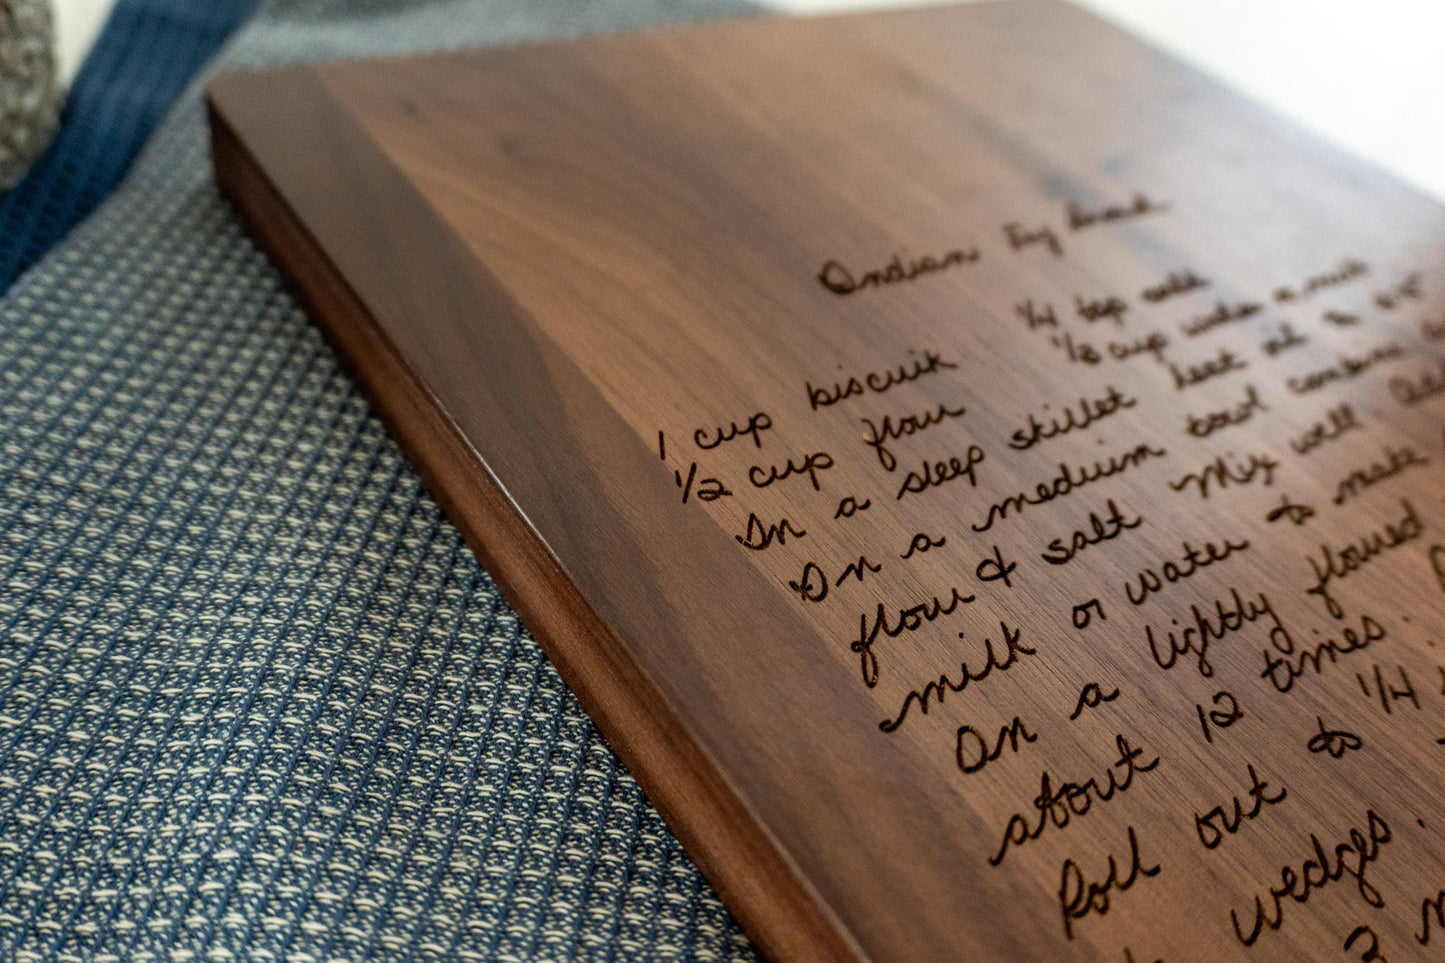 Indian Fry Bread
1 cup biscuik 1/4 tsp salt
1/2 cup flour 1/3 cup water or milk
In a deep skillet heat oil to
In a medium bowl combine
flour & salt Mix well Add
milk or water to make
On a lightly floured
about 12 times.
Roll out to 1/4
wedges.